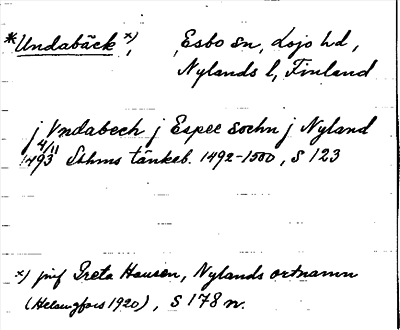 *Undabäck x), Esbo sn, Lojo hd,
Nylands l, Finland
j Vndabech j Espee sochn j Nyland
4/11 1493 Sthms tänkeb. 1492-1500, S 123
x) jmf Greta Hausen, Nylands ortnamn
(Helsingfors 1920), S 178 n.